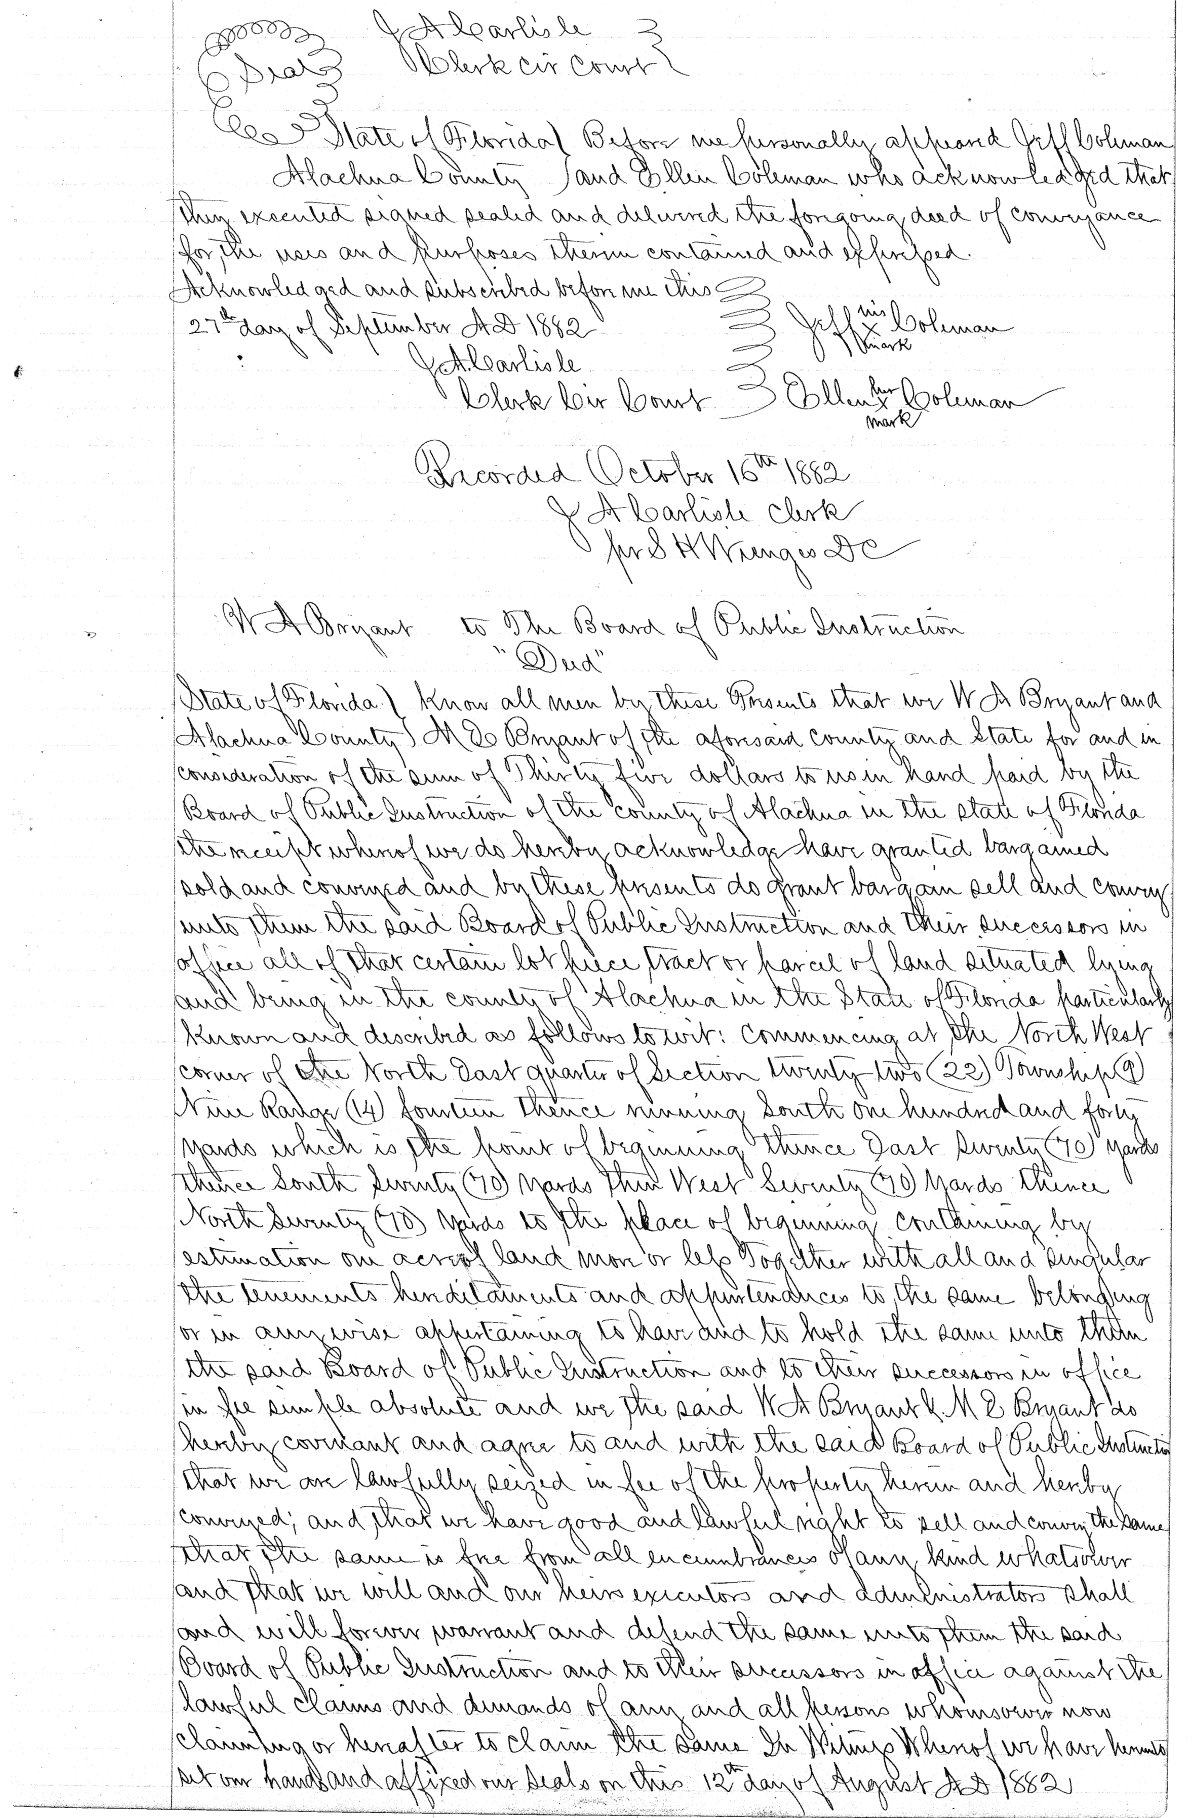 J A Carlisle
Seal Clerk Cir Court
State of Florida Before me personally appeared Jeff Coleman
Alachua County and Ellen Coleman who acknowledged that
they executed signed sealed and delivered the foregoing deed of conveyance
for the uses and purposes therein contained and expressed.
Acknowledged and subscribed before me this
27th day of September A D 1882 Jeff his x mark Coleman
J A Carlisle
Clerk Cir Court Ellen her x mark Coleman
Recorded October 16th 1882
J A Carlisle Clerk
pr S H Wienges D C
W A Bryant to The Board of Public Instruction
"Deed"
State of Florida) Know all men by these Presents that we W A Bryant and
Alachua County) M E Bryant of the aforesaid county and State for and in
consideration of the sum of Thirty five dollars to us in hand paid by the
Board of Public Instruction of the county of Alachua in the state of Florida
the receipt whereof we do hereby acknowledge have granted bargained
sold and conveyed and by these presents do grant bargain sell and convey
unto them the said Board of Public Instruction and their successors in
office all of that certain lot piece tract or parcel of land situated lying
and being in the county of Alachua in the State of Florida particularly
known and described as follows to wit: Commencing at the North West
corner of the North East quarter of Section twenty-two (22) Township (9)
Nine Range (14) fourteen thence running South one hundred and forty
yards which is the point of beginning thence East Seventy (70) yards
thence South Seventy (70) Yards then West Seventy (70) Yards thence
North Seventy (70) Yards to the place of beginning containing by
estimation one acre of land more or less Together with all and singular
the tenements hereditaments and appurtenances to the same belonging
or in any wise appertaining to have and to hold the same unto them
the said Board of Public Instruction and to their successors in office
in fee simple absolute and we the said W A Bryant & M E Bryant do
hereby covenant and agree to and with the said Board of Public Instruction
that we are lawfully seized in fee of the property herein and hereby
conveyed; and that we have good and lawful right to sell and convey the same
that the same is free from all encumbrances of any kind whatsoever
and that we will and our heirs executors and administrators shall
and will forever warrant and defend the same unto them the said
Board of Public Instruction and to their successors in office against the
lawful claims and demands of any and all persons whomsoever now
claiming or hereafter to claim the same In Witness Whereof we have hereunto
set our hands and affixed our Seals on this 12th day of August A D 1882